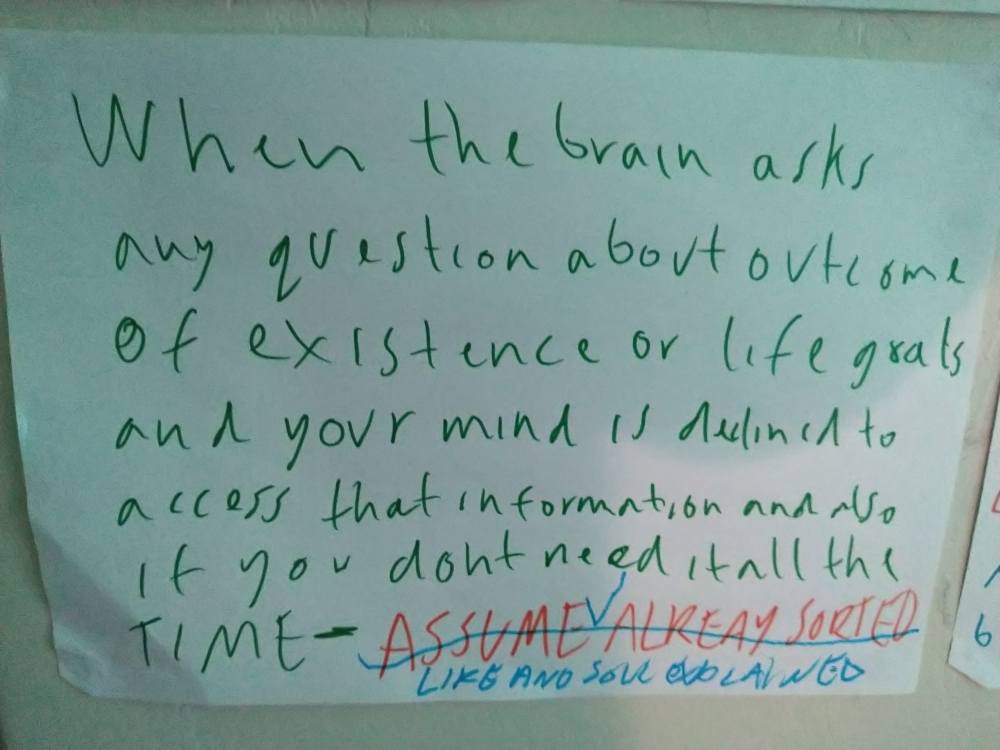 When the brain asks
any question about outcome
of existence or life goals
and your mind is declined to
access that information and also
if you dont need it all the
TIME - ASSUME ALREAY SORTED
LIKE AND SOUL EXPLAINED
6